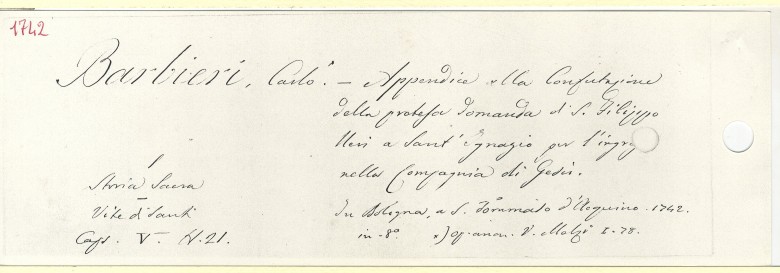 1742
Barbieri, Carlo. — Appendice alla Confutazione
della pretesa domanda di S. Filippo
Neri a Sant'Ignazio per l'ingr
nella Compagnia di Gesù.
Storia Sacra
Vite di Santi
Caps. V. N. 21.
In Bologna, a S. Tommaso d'Acquino. 1742.
in-8º *) Op. anon. V. Melzi I-78.